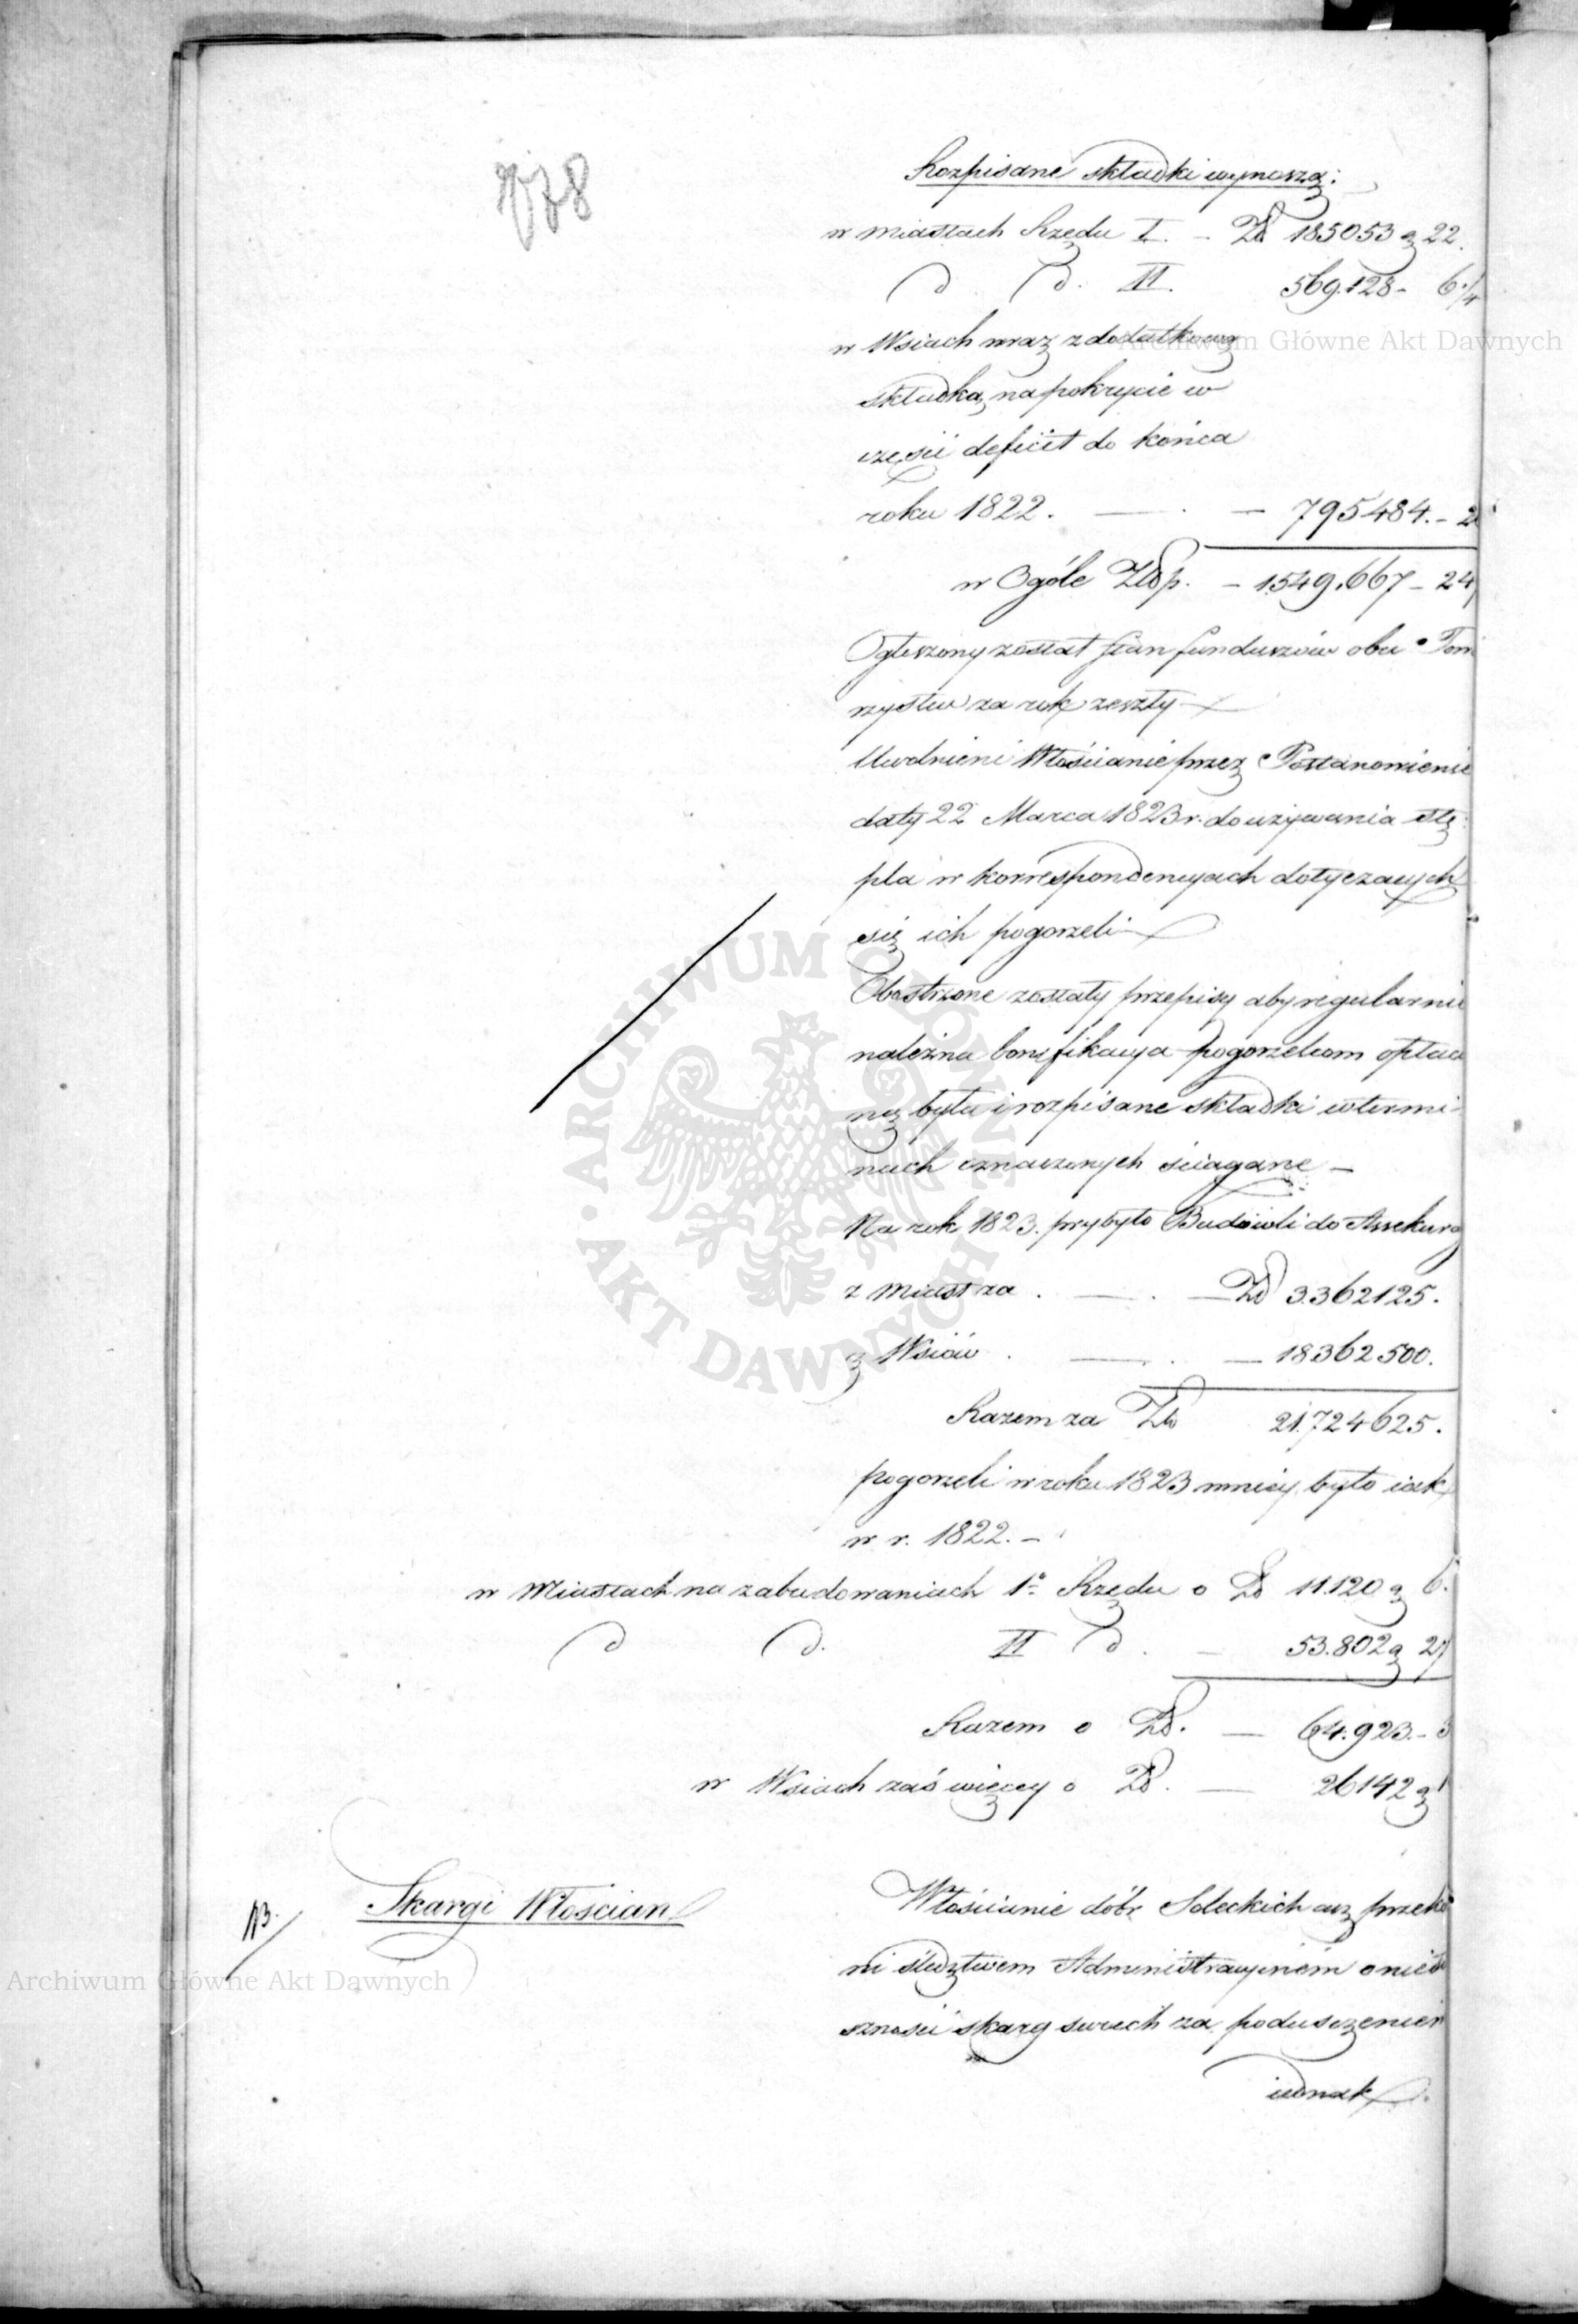 Rozpisane składki wynoszą:
w miastach Rzędu I. – Zł 185053 g 22.
d. d. II. 569.128 – 6 1/4
w Wsiach wraz z dodatkową
składką na pokrycie w
części deficit do końca
roku 1822. — . — 795484. – 2
w Ogóle Złp. – 1.549.667 – 24
Ogłoszony został stan funduszów obu Tow
rzystw za rok zeszły
Uwolnieni Włościanie przez Postanowienie
daty 22 Marca 1823 r. do używania stę
pla w korrespondencyach dotyczących
się ich pogorzeli
Obostrzone zostały przepisy aby regularnie
należna bonifikacya pogorzelcom opłaca
ną była i rozpisane składki w termi-
nach oznaczonych ściągane –
Na rok 1823. przybyło Budowli do Assekura
z Miast za . — . — Zł 3.362125.
z Wsiów . — . — 18.362500.
Razem za Zł 21.724625.
pogorzeli w roku 1823 mniéy było iak
w r. 1822. –
w Miastach na zabudowaniach 1° Rzędu o Zł 11.120 g 6.
d d. II d. — 53.802 g 27
Razem o Zł. — 64.923. – 3
w Wsiach zaś więcey o Zł. — 26142 g 1
13. Skargi Włościan
Włościanie dóbr Soleckich acz przeko
ni śledztwem Administracyiném o niesł
szności skarg swoich za poduszczeniem
iednak
Archiwum Główne Akt Dawnych
ARCHIWUM GŁÓWNE • AKT DAWNYCH •
Archiwum Główne Akt Dawnych